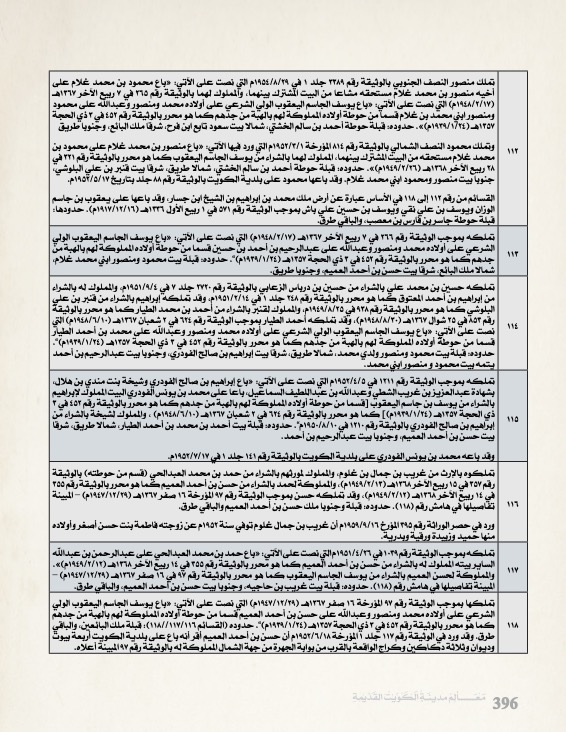 تملك منصور النصف الجنوبي بالوثيقة رقم ٣٣٨٩ جلد ١ في ١٩٥٤/٨/٢٩م التي نصت على الآتي: «باع محمود بن محمد غلام على
أخيه منصور بن محمد غلام مستحقه مشاعا من البيت المشترك بينهما، والمملوك لهما بالوثيقة رقم ٢٦٥ في ٧ ربيع الآخر ١٣٦٧هـ
(١٩٤٨/٢/١٧م) التي نصت على الآتي: «باع يوسف الجاسم اليعقوب الولي الشرعي على أولاده محمد ومنصور وعبدالله على محمود
ومنصور ابني محمد بن غلام قسما من حوطة أولاده المملوكة لهم بالهبة من جدهم كما هو محرر بالوثيقة رقم ٤٥٢ في ٢ ذي الحجة
١٣٥٧هـ (١٩٣٩/١/٢٤م)». حدوده: قبلة حوطة أحمد بن سالم الخشتي، شمالا بيت سعود تابع ابن فرج، شرقا ملك البائع، وجنوبا طريق
١١٢
وتملك محمود النصف الشمالي بالوثيقة رقم ٨١٤ المؤرخة ١٩٥٢/٢/١م التي ورد فيها الآتي: «باع منصور بن محمد غلام على محمود بن
محمد غلام مستحقه من البيت المشترك بينهما، المملوك لهما بالشراء من يوسف الجاسم اليعقوب كما هو محرر بالوثيقة رقم ٢٢١ في
٢٨ ربيع الآخر ١٣٦٨هـ (١٩٤٩/٢/٢٦م)». حدوده: قبلة حوطة أحمد بن سالم الخشتي، شمالا طريق، شرقا بيت قنبر بن علي البلوشي،
جنوبا بيت منصور ومحمود ابني محمد غلام. وقد باعها محمود على بلدية الكويت بالوثيقة رقم ٨٨ جلد بتاريخ ١٩٥٢/٥/١٧م.
القسائم من رقم ١١٢ إلى ١١٨ في الأساس عبارة عن أرض ملك محمد بن إبراهيم بن الشيخ ابن جسار، وقد باعها على يعقوب بن جاسم
الوزان ويوسف بن علي نقي ويوسف بن حسين علي باش بموجب الوثيقة رقم ٥٧١ في ١ ربيع الأول ١٣٣٦هـ (١٩١٧/١٢/١٦م). حدودها:
قبلة حوطة جاسر بن فارس بن معصب، والباقي طرق.
تملكه بموجب الوثيقة رقم ٢٦٦ في ٧ ربيع الآخر ١٣٦٧هـ (١٩٤٨/٢/١٧م) التي نصت على الآتي: «باع يوسف الجاسم اليعقوب الولي
الشرعي على أولاده محمد ومنصور وعبدالله على عبدالرحيم بن أحمد بن حسين قسما من حوطة أولاده المملوكة لهم بالهبة من
١١٣
جدهم كما هو محرر بالوثيقة رقم ٤٥٢ في ٢ ذي الحجة ١٣٥٧هـ (١٩٣٩/١/٢٤م)". حدوده: قبلة بيت محمود ومنصور ابني محمد،
شمالا ملك البائع، شرقا بيت حسن بن أحمد العميم، وجنوبا طريق.
تملكه حسين بن محمد علي بالشراء من حسين بن درباس الزعابي بالوثيقة رقم ٣٧٢٠ جلد ٧ في ١٩٥١/٩/٤م، والمملوك له بالشراء
من إبراهيم بن أحمد المعتوق كما هو محرر بالوثيقة رقم ٢٤٨ جلد ١ في ١٩٥١/٢/١٤م، وقد تملكه إبراهيم بالشراء من قنبر بن علي
البلوشي كما هو محرر بالوثيقة رقم ٩٣٨ في ١٩٤٩/٨/٢٥م، والمملوك لقنبر بالشراء من أحمد بن محمد الطيار كما هو محرر بالوثيقة
رقم ٨٥٣ في ٢٥ شوال ١٣٦٧هـ (١٩٤٨/٨/٣٠م)، وقد تملكه أحمد الطيار بموجب الوثيقة رقم ٦٢٤ في ٢ شعبان ١٣٦٧هـ (١٩٤٨/٦/١٠م) التي
١١٤
نصت على الآتي: «باع يوسف الجاسم اليعقوب الولي الشرعي على أولاده محمد ومنصور وعبدالله على محمد بن أحمد الطيار
قسما من حوطة أولاده المملوكة لهم بالهبة من جدهم كما هو محرر بالوثيقة رقم ٤٥٢ في ٢ ذي الحجة ١٣٥٧هـ (١٩٣٩/١/٢٤م)".
حدوده: قبلة بيت محمود ومنصور ولدي محمد، شمالا طريق، شرقا بيت إبراهيم بن صالح الفودري، وجنوبا بيت عبدالرحيم بن أحمد
يتمه بيت محمود و منصور ابني محمد.
تملكه بموجب الوثيقة رقم ١٢١١ في ١٩٥٢/٤/٥م التي نصت على الآتي: «باع إبراهيم بن صالح الفودري وشيخة بنت مندي بن هلال،
بشهادة عبدالعزيز بن غريب الشطي وعبدالله بن عبداللطيف السماعيل، باعا على محمد بن يونس الفودري البيت المملوك لإبراهيم
بالشراء من يوسف بن جاسم اليعقوب [قسما من حوطة أولاده المملوكة لهم بالهبة من جدهم كما هو محرر بالوثيقة رقم ٤٥٢ في ٢
١١٥
ذي الحجة ١٣٥٧هـ (١٩٣٩/١/٢٤م)] كما هو محرر بالوثيقة رقم ٦٢٤ في ٢ شعبان ١٣٦٧هـ (١٩٤٨/٦/١٠م) ، والمملوك لشيخة بالشراء من
إبراهيم بن صالح الفودري بالوثيقة رقم ١٢١٠ في ١٩٥٠/٨/١٠م". حدوده: قبلة بيت أحمد بن محمد بن أحمد الطيار، شمالا طريق، شرقا
بيت حسن بن أحمد العميم، وجنوبا بيت عبدالرحيم بن أحمد.
وقد باعه محمد بن يونس الفودري على بلدية الكويت بالوثيقة رقم ١٤١ جلد ١ في ١٩٥٢/٧/١٧م.
تملكوه بالإرث من غريب بن جمال بن غلوم، والمملوك لمورثهم بالشراء من حمد بن محمد العبدالحي (قسم من حوطته) بالوثيقة
رقم ٣٥٧ في ١٥ ربيع الآخر ١٣٦٨هـ (١٩٤٩/٢/١٣م)، والمملوكة لحمد بالشراء من حسن بن أحمد العميم كما هو محرر بالوثيقة رقم ٣٥٥
في ١٤ ربيع الآخر ١٣٦٨هـ (١٩٤٩/٢/١٢م)، وقد تملكه حسن بموجب الوثيقة رقم ٩٧ المؤرخة ١٦ صفر ١٣٦٧هـ (١٩٤٧/١٢/٢٩م) – المبينة
١١٦
تفاصيلها في هامش رقم (١١٨). حدوده: قبلة وجنوبا ملك حسن بن أحمد العميم والباقي طرق.
ورد في حصر الوراثة رقم ٢٩٥ المؤرخ ١٩٥٩/٩/١٦م أن غريب بن جمال غلوم توفي سنة ١٩٥٢م عن زوجته فاطمة بنت حسن أصغر وأولاده
منها حميد وزبيدة ورقية وبدرية.
تملكه بموجب الوثيقة رقم ١٠٣٩ في ١٩٥١/٤/٢٦م التي نصت على الآتي: «باع حمد بن محمد العبدالحي على عبدالرحمن بن عبدالله
الساير بيته المملوك له بالشراء من حسن بن أحمد العميم كما هو محرر بالوثيقة رقم ٣٥٥ في ١٤ ربيع الآخر ١٣٦٨هـ (١٩٤٩/٢/١٢م)».
١١٧
والمملوكة لحسن العميم بالشراء من يوسف الجاسم اليعقوب كما هو محرر بالوثيقة رقم ٩٧ في ١٦ صفر ١٣٦٧هـ (١٩٤٧/١٢/٢٩م) –
المبينة تفاصيلها في هامش رقم (١١٨). حدوده: قبلة بيت غريب بن حاجيه، وجنوبا بيت حسن بن أحمد العميم، والباقي طرق.
تملكها بموجب الوثيقة رقم ٩٧ المؤرخة ١٦ صفر ١٣٦٧هـ (١٩٤٧/١٢/٢٩م) التي نصت على الآتي: «باع يوسف الجاسم اليعقوب الولي
الشرعي على أولاده محمد ومنصور وعبدالله على حسن بن أحمد العميم قسما من حوطة أولاده المملوكة لهم بالهبة من جدهم
كما هو محرر بالوثيقة رقم ٤٥٢ في ٢ ذي الحجة ١٣٥٧هـ (١٩٣٩/١/٢٤م)". حدوده (القسائم ١١٨/١١٧/١١٦): قبلة ملك البائعين، والباقي
١١٨
طرق. وقد ورد في الوثيقة رقم ١١٧ جلد ١ المؤرخة ١٩٥٢/٦/١٨م أن حسن بن أحمد العميم أقر أنه باع على بلدية الكويت أربعة بيوت
وديوان وثلاثة دكاكين وكراج الواقعة بالقرب من بوابة الجهرة من جهة الشمال المملوكة له بالوثيقة رقم ٩٧ المبينة أعلاه.
معالم مدينة الكويت القديمة
396